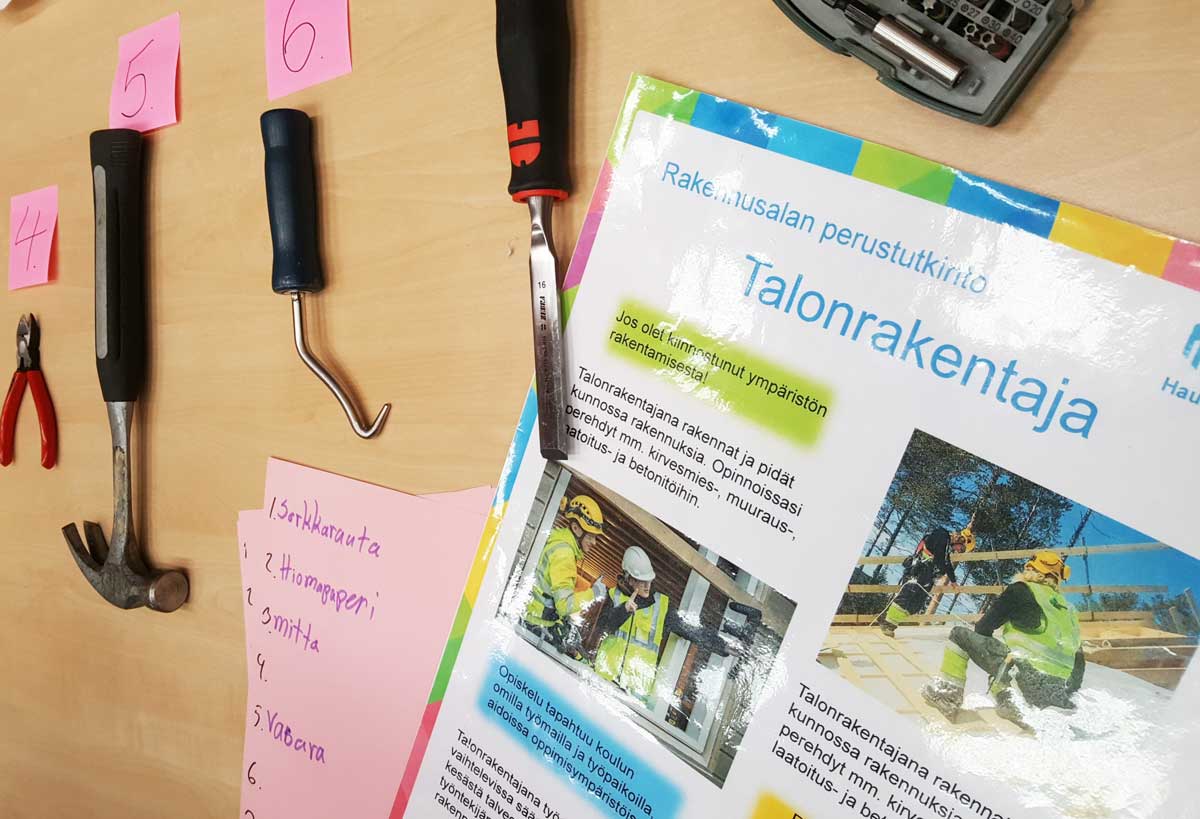 5.
6.
4.
16
Rakennusalan perustutkinto
Talonrakentaja
Hau
Jos olet kiinnostunut ympäristön
rakentamisesta!
Talonrakentajana rakennat ja pidät
kunnossa rakennuksia. Opinnoissasi
perehdyt mm. kirvesmies-, muuraus-,
laatoitus- ja betonitöihin.
1. Sorkkarauta
2. Hiomapaperi
3. mitta
4.
5. Vasara
6.
Opiskelu tapahtuu koulun
omilla työmailla ja työpaikoilla,
aidoissa oppimisympäristöis
Talonrakentajana työ
vaihtelevissa sää
kesästä talve
työntekijä
raken
Talonrakentajana rakenna
kunnossa rakennuksia
perehdyt mm. kirves
laatoitus- ja bet